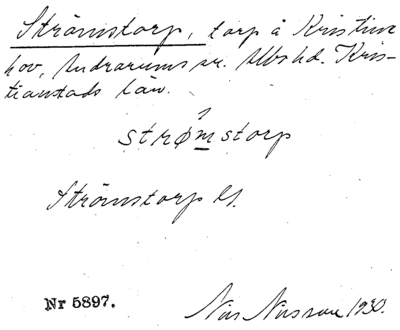 Strömstorp, torp å Kristine
hov, Andrarums sn. Albo hd. Kris-
tianstads län.
strømstorp
Strömstorp
Nr 5897.
Nils Nilsson 1930.